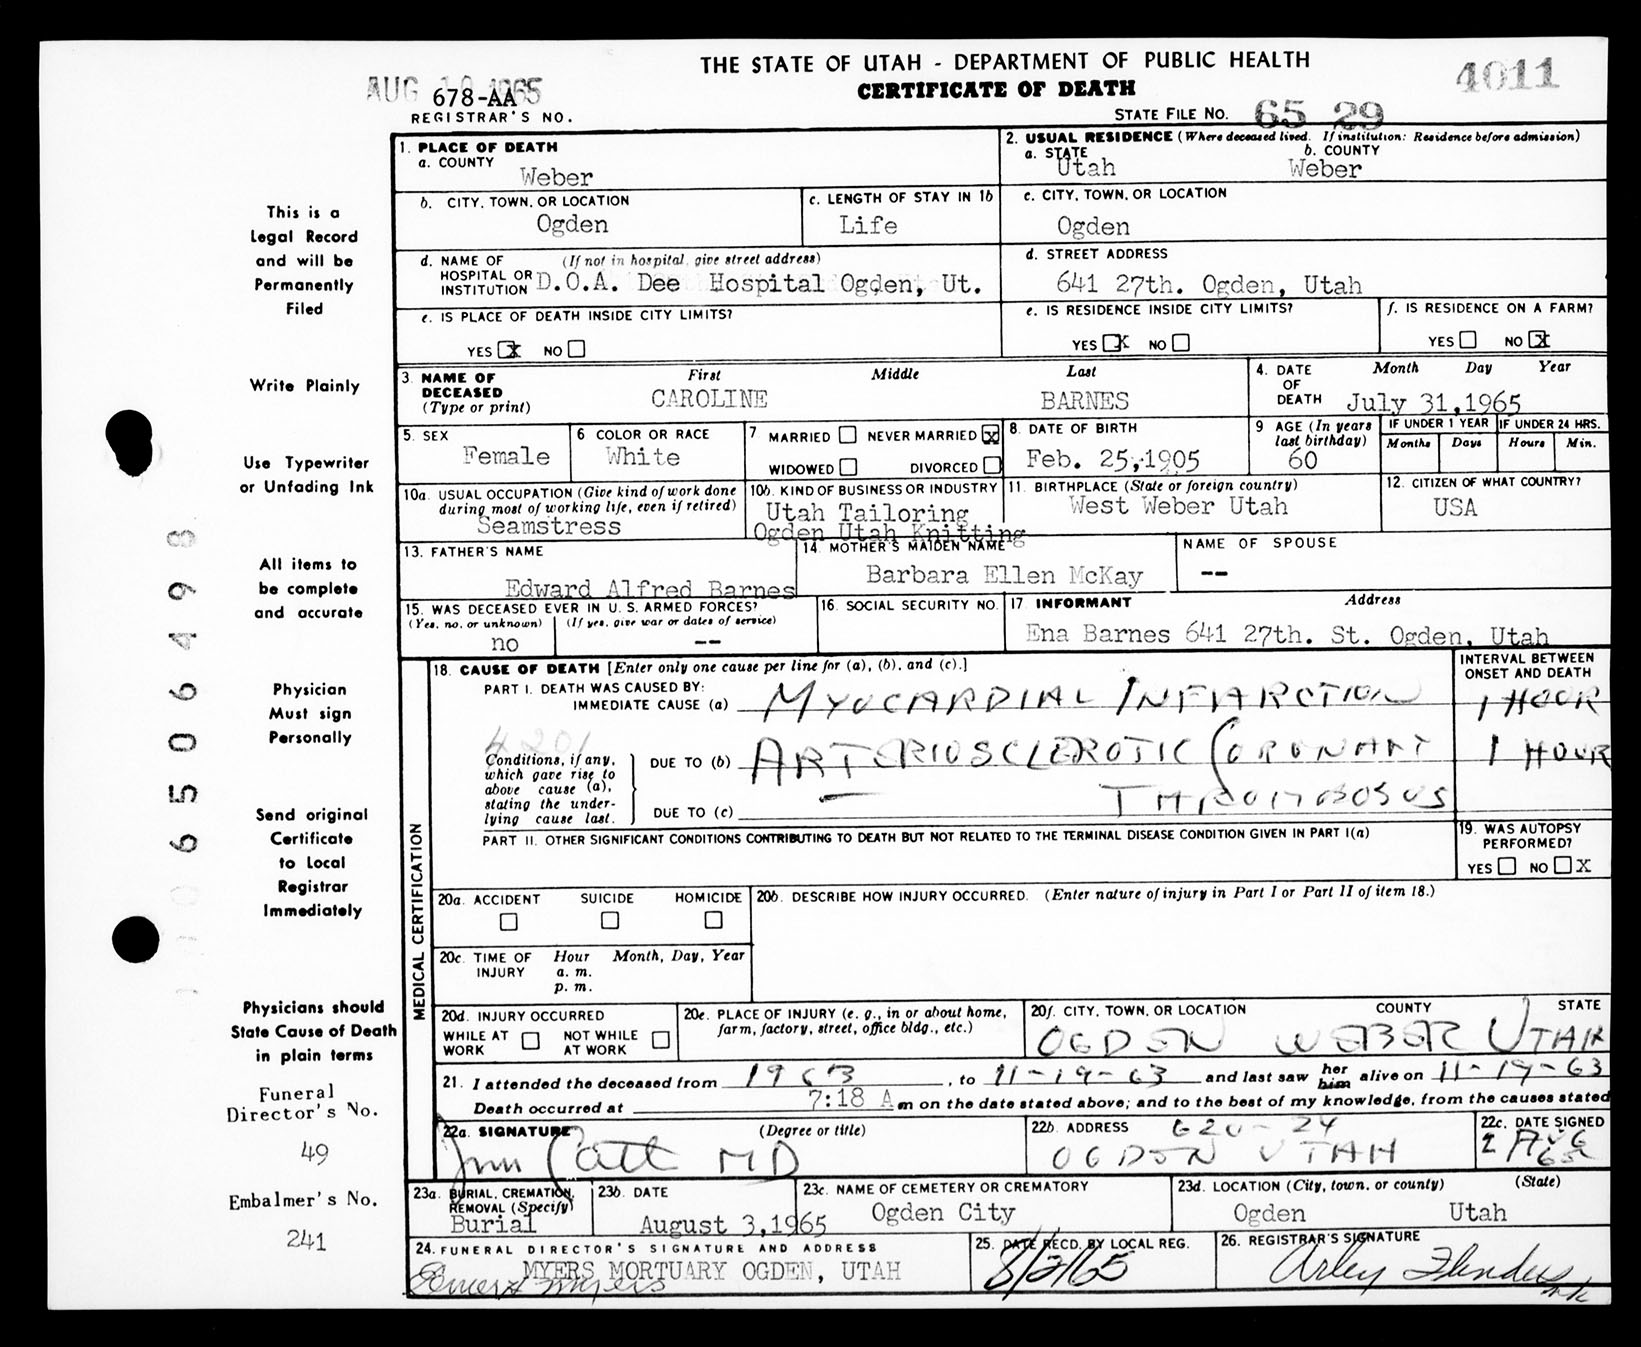 THE STATE OF UTAH - DEPARTMENT OF PUBLIC HEALTH
CERTIFICATE OF DEATH
4011
AUG 10 1965
678-AA
REGISTRAR'S NO.
STATE FILE NO. 65 29
1. PLACE OF DEATH
a. COUNTY
Weber
2. USUAL RESIDENCE (Where deceased lived. If institution: Residence before admission)
a. STATE b. COUNTY
Utah Weber
b. CITY, TOWN, OR LOCATION
Ogden
c. LENGTH OF STAY IN 1b
Life
c. CITY, TOWN, OR LOCATION
Ogden
d. NAME OF (If not in hospital, give street address)
HOSPITAL OR
INSTITUTION D.O.A. Dee Hospital Ogden, Ut.
d. STREET ADDRESS
641 27th. Ogden, Utah
e. IS PLACE OF DEATH INSIDE CITY LIMITS?
YES X NO
e. IS RESIDENCE INSIDE CITY LIMITS?
YES X NO
f. IS RESIDENCE ON A FARM?
YES NO X
3. NAME OF DECEASED (Type or print)
First Middle Last
CAROLINE BARNES
4. DATE OF DEATH
Month Day Year
July 31,1965
5. SEX
Female
6 COLOR OR RACE
White
7 MARRIED NEVER MARRIED X
WIDOWED DIVORCED
8. DATE OF BIRTH
Feb. 25,1905
9 AGE (In years last birthday)
60
IF UNDER 1 YEAR IF UNDER 24 HRS.
Months Days Hours Min.
10a. USUAL OCCUPATION (Give kind of work done
during most of working life, even if retired)
Seamstress
10b. KIND OF BUSINESS OR INDUSTRY
Utah Tailoring
Ogden Utah Knitting
11. BIRTHPLACE (State or foreign country)
West Weber Utah
12. CITIZEN OF WHAT COUNTRY?
USA
13. FATHER'S NAME
Edward Alfred Barnes
14. MOTHER'S MAIDEN NAME
Barbara Ellen McKay
NAME OF SPOUSE
--
15. WAS DECEASED EVER IN U. S. ARMED FORCES?
(Yes, no, or unknown) (If yes, give war or dates of service)
no --
16. SOCIAL SECURITY NO.
17. INFORMANT Address
Ena Barnes 641 27th. St. Ogden, Utah
18. CAUSE OF DEATH [Enter only one cause per line for (a), (b), and (c).]
INTERVAL BETWEEN
ONSET AND DEATH
PART I. DEATH WAS CAUSED BY:
IMMEDIATE CAUSE (a) MYOCARDIAL INFARCTION 1 HOUR
4201
Conditions, if any,
which gave rise to
above cause (a),
stating the under-
lying cause last.
DUE TO (b) ARTERIOSCLEROTIC CORONARY 1 HOUR
THROMBOSUS
DUE TO (c)
PART II. OTHER SIGNIFICANT CONDITIONS CONTRIBUTING TO DEATH BUT NOT RELATED TO THE TERMINAL DISEASE CONDITION GIVEN IN PART I(a)
19. WAS AUTOPSY
PERFORMED?
YES NO X
20a. ACCIDENT SUICIDE HOMICIDE
20b. DESCRIBE HOW INJURY OCCURRED. (Enter nature of injury in Part I or Part II of item 18.)
20c. TIME OF INJURY
Hour Month, Day, Year
a. m.
p. m.
20d. INJURY OCCURRED
WHILE AT WORK NOT WHILE AT WORK
20e. PLACE OF INJURY (e. g., in or about home,
farm, factory, street, office bldg., etc.)
20f. CITY, TOWN, OR LOCATION COUNTY STATE
OGDEN WEBER UTAH
21. I attended the deceased from 1963, to 11-19-63 and last saw her him alive on 11-19-63
Death occurred at 7:18 A m on the date stated above; and to the best of my knowledge, from the causes stated
22a. SIGNATURE (Degree or title)
MD
22b. ADDRESS 620-24
OGDEN UTAH
22c. DATE SIGNED
2 AUG 65
23a. BURIAL, CREMATION, REMOVAL (Specify)
Burial
23b. DATE
August 3,1965
23c. NAME OF CEMETERY OR CREMATORY
Ogden City
23d. LOCATION (City, town, or county) (State)
Ogden Utah
24. FUNERAL DIRECTOR'S SIGNATURE AND ADDRESS
MYERS MORTUARY OGDEN, UTAH
Myers
25. DATE RECD. BY LOCAL REG.
8/2/65
26. REGISTRAR'S SIGNATURE
MEDICAL CERTIFICATION
This is a
Legal Record
and will be
Permanently
Filed
Write Plainly
Use Typewriter
or Unfading Ink
All items to
be complete
and accurate
Physician
Must sign
Personally
Send original
Certificate
to Local
Registrar
Immediately
Physicians should
State Cause of Death
in plain terms
Funeral
Director's No.
49
Embalmer's No.
241
650649